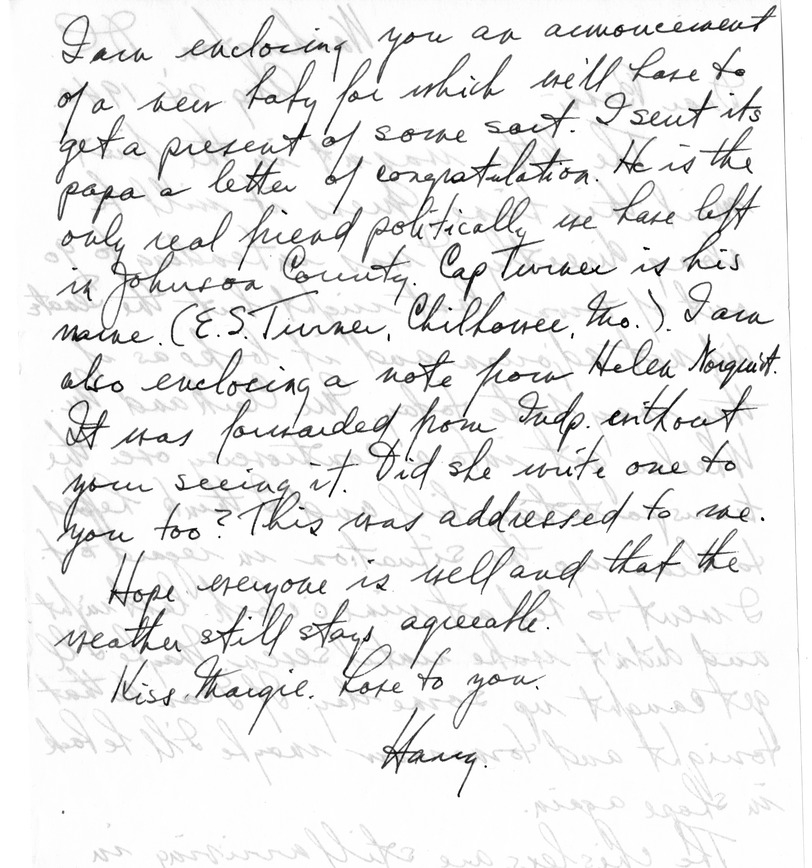 I am enclosing you an announcement
of a new baby for which we'll have to
get a present of some sort. I sent its
papa a letter of congratulation. He is the
only real friend politically we have left
in Johnson County. Cap Turner is his
name. (E.S. Turner, Chilhowee, Mo.). I am
also enclosing a note from Helen Norquist.
It was forwarded from Indp. without
your seeing it. Did she write one to
you too? This was addressed to me.
Hope everyone is well and that the
weather still stays agreeable.
Kiss Margie. Love to you.
Harry.